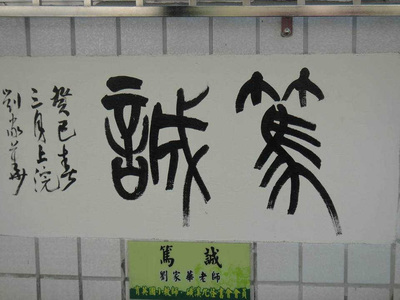 篤誠
癸巳春
三月上浣
劉家華
篤誠
劉家華老師